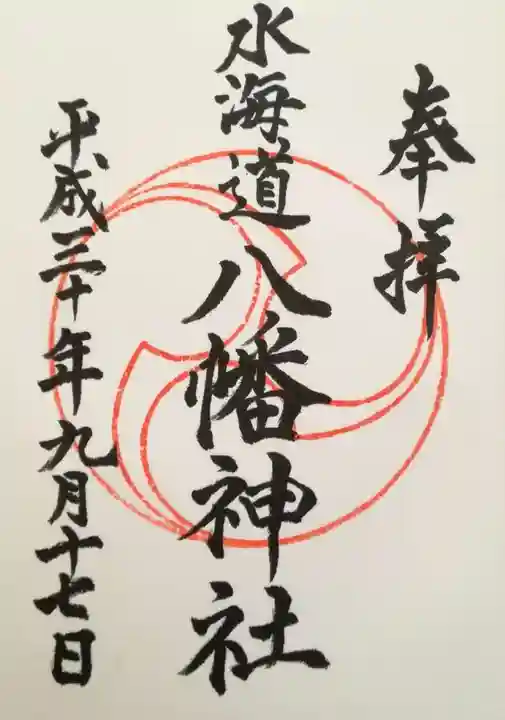 奉拝
水海道八幡神社
平成三十年九月十七日